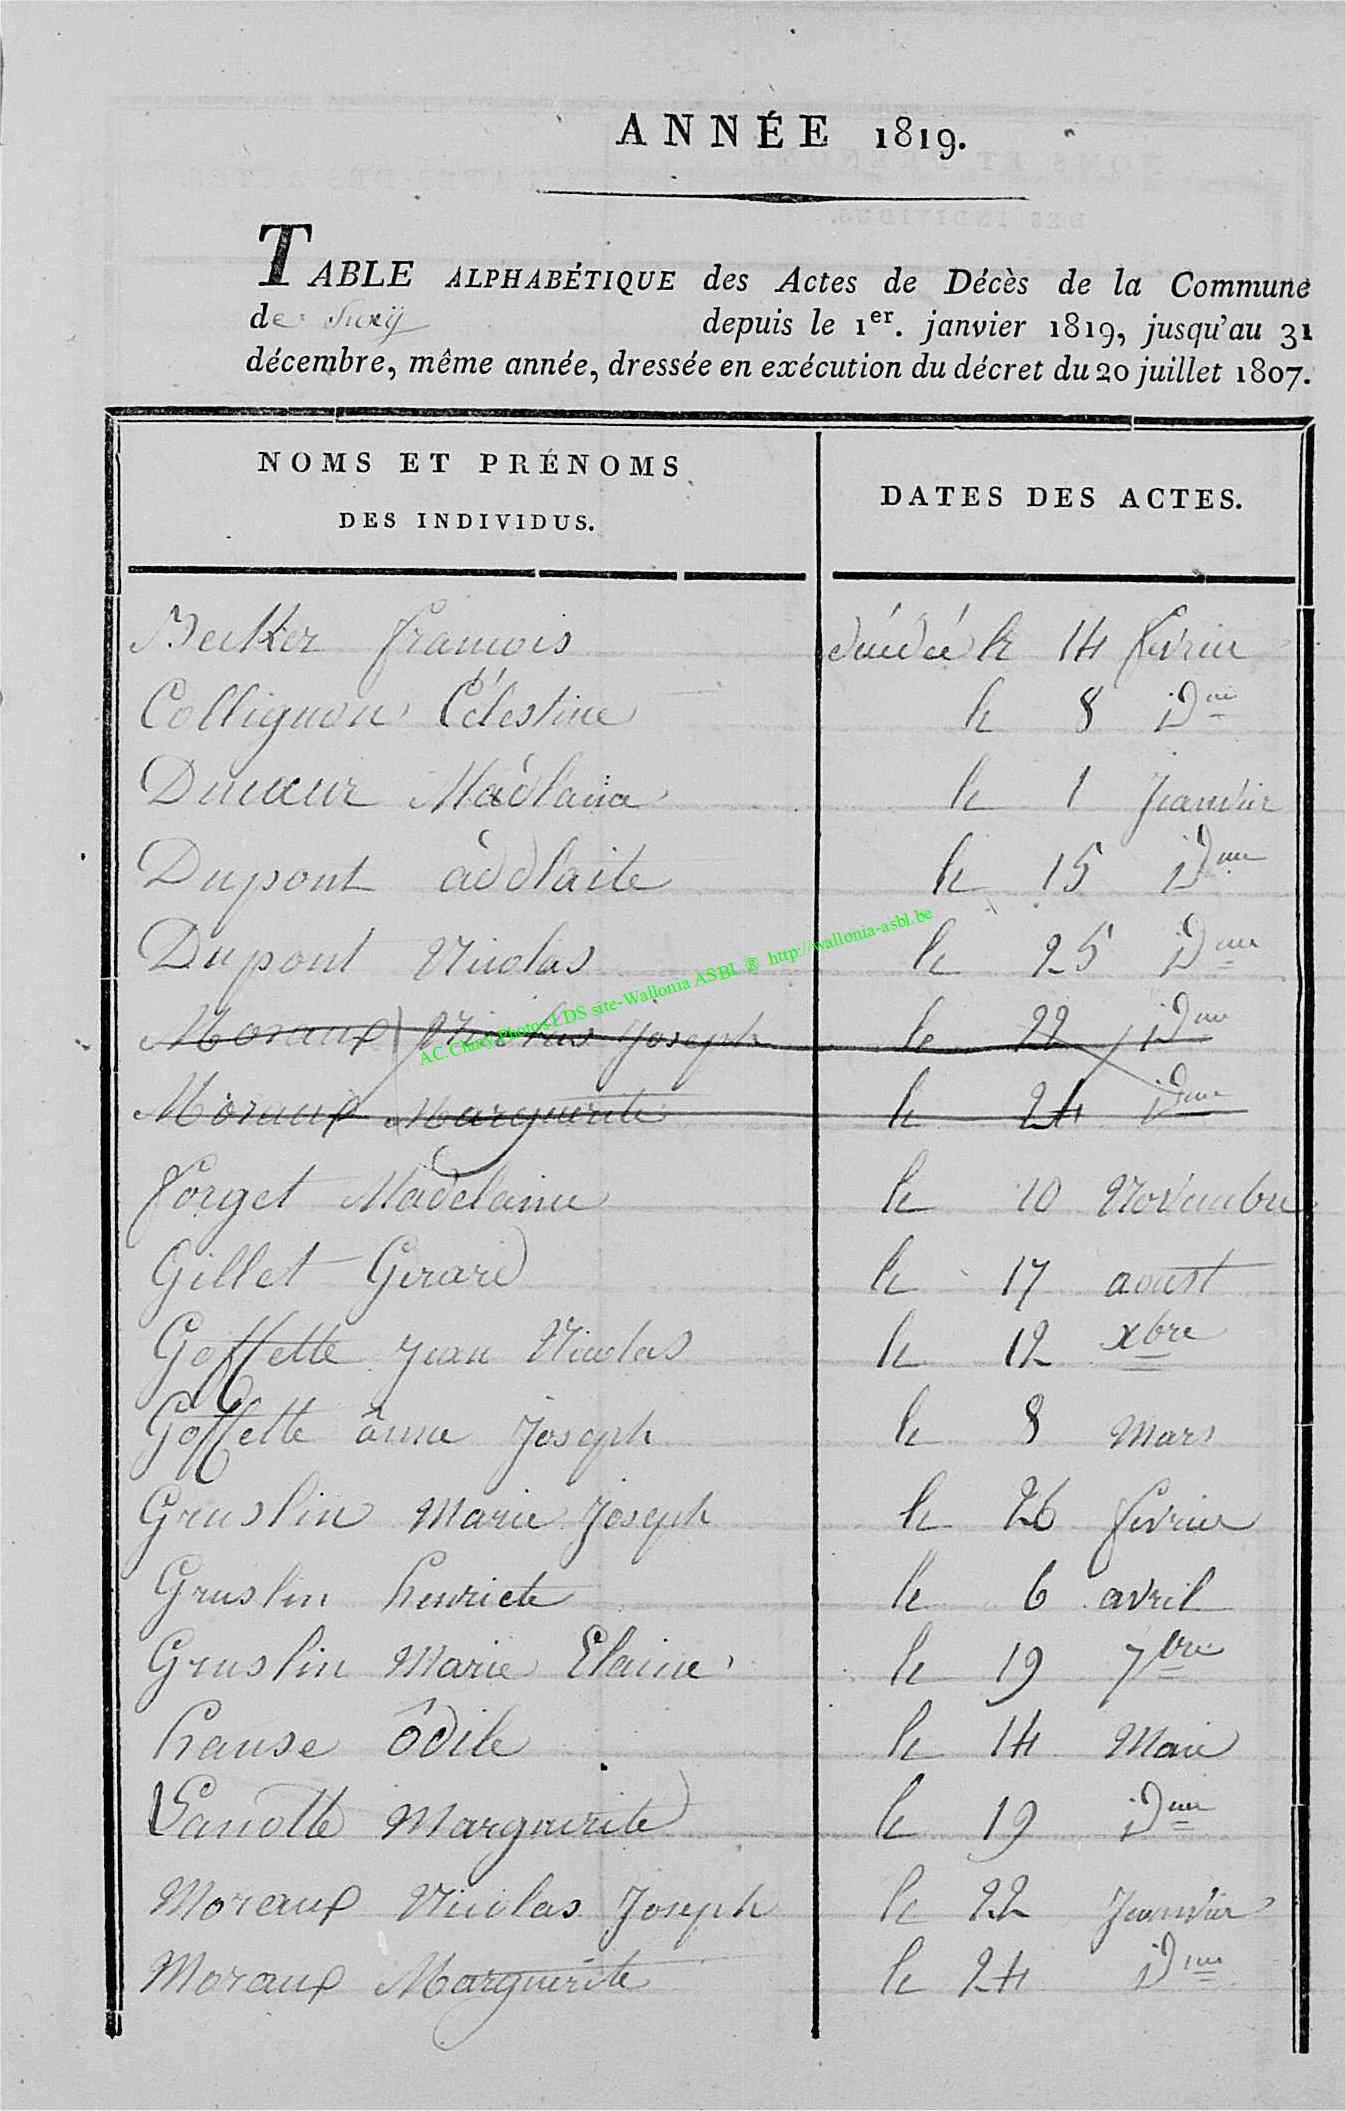 ANNÉE 1819.
TABLE ALPHABÉTIQUE des Actes de Décès de la Commune
de Suxÿ depuis le 1er. janvier 1819, jusqu'au 31
décembre, même année, dressée en exécution du décret du 20 juillet 1807.
NOMS ET PRÉNOMS
DES INDIVIDUS.
DATES DES ACTES.
Becker francois décédée le 14 fevrier
Collignon Célestine le 8 idem
Ducœur le 1 Janvier
Dupont adelaite le 15 idem
Dupont Nicolas le 25 idem
AC Chiny Photos LDS site-Wallonia ASBL ® http://wallonia-asbl.be
Moraux Nicolas Joseph le 22 idem
Moraux Marguerite le 24 idem
forget Madelaine le 10 Novembre
Gillet Gerard le 17 aoust
Goffette Jean Nicolas le 12 xbre
Goffette ânne Joseph le 8 Mars
Gruslin Marie Joseph le 26 fevrier
Gruslin henriete le 6 avril
Gruslin Marie Elaine le 19 7bre
hause ôdile le 14 Mai
Lanotte Marguerite le 19 idem
Moraux Nicolas Joseph le 22 Janvier
Moraux Marguerite le 24 idem